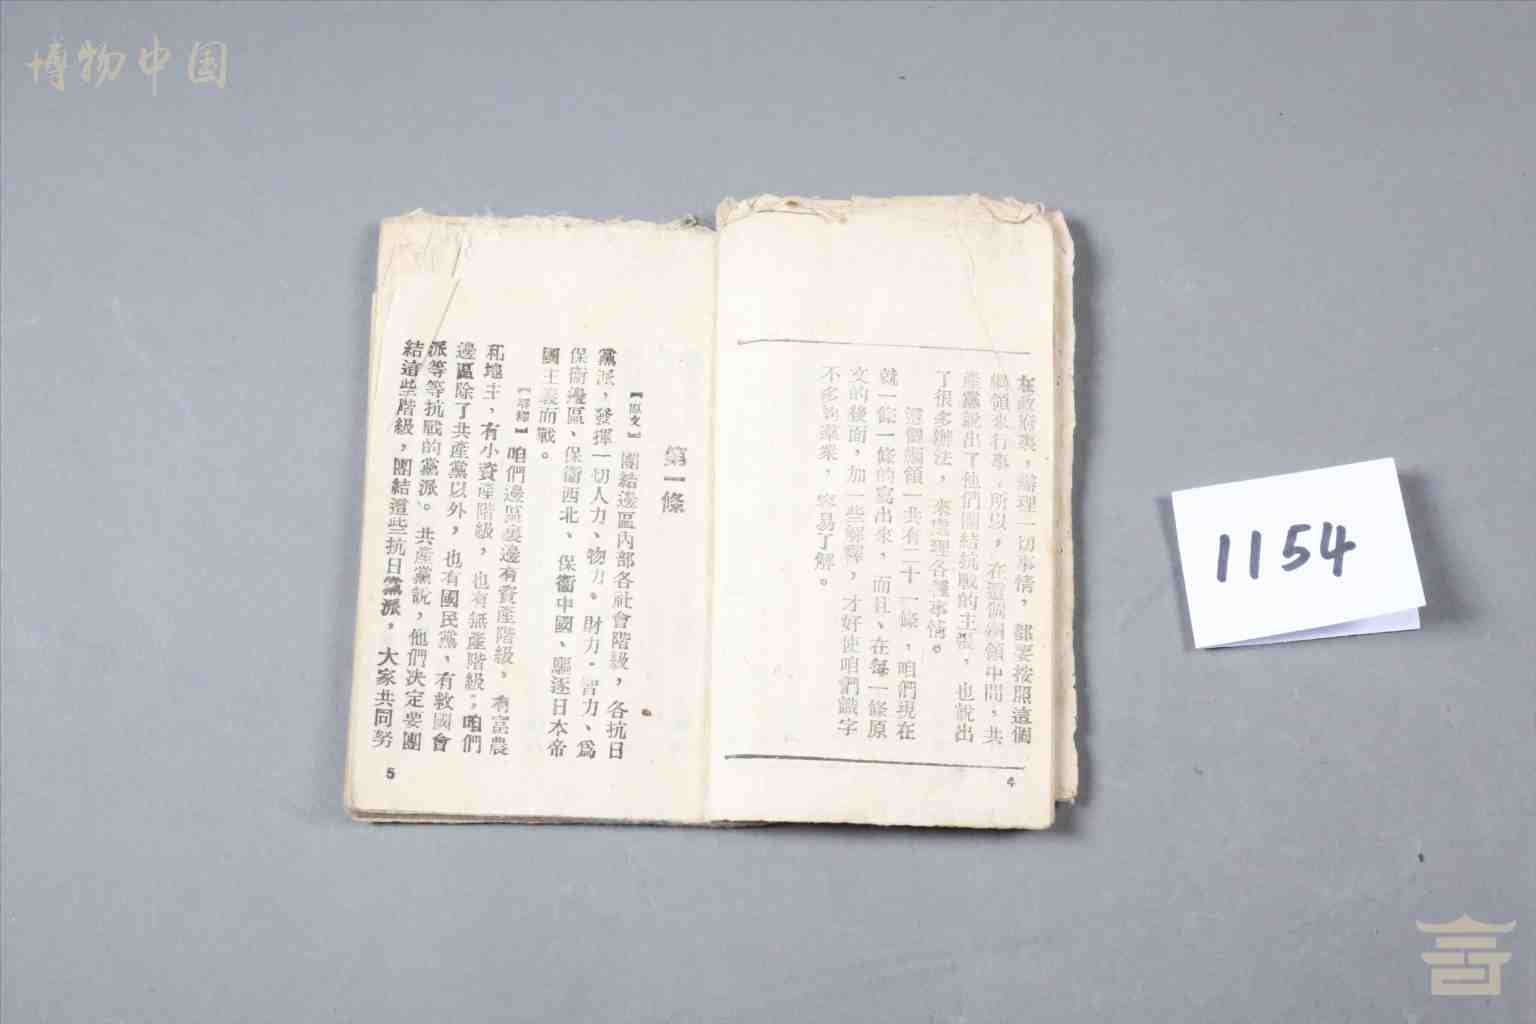 博物中国
在政府裏，辦理一切事情，都要按照這個
綱領來行事，所以，在這個綱領中間，共
產黨說出了他們團結抗戰的主張，也說出
了很多辦法，來處理各種事情。
這個綱領一共有二十一條，咱們現在
就一條一條的寫出來，而且、在每一條原
文的後面，加一些解釋，才好使咱們識字
不多的羣衆，容易了解。
4
第一條
【原文】團結邊區內部各社會階級，各抗日
黨派，發揮一切人力、物力。財力．智力、爲
保衛邊區、保衛西北、保衞中國、驅逐日本帝
國主義而戰。
【解釋】咱們邊區裏邊有資產階級，有富農
和地主，有小資產階級，也有無產階級；咱們
邊區除了共產黨以外，也有國民黨，有救國會
派等等抗戰的黨派。共產黨說，他們決定要團
結這些階級，團結這些抗日黨派，大家共同努
5
1154